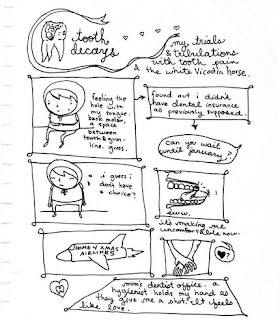 tooth
decays
my trials
& tribulations
with tooth pain
& the white Vicodin horse.
feeling the
hole with
my tongue.
black matter,
a space
between
tooth & gum-
line. gross.
found out i didn't
have dental insurance
as previously supposed.
can you wait
until january?
i guess i
don't have
a choice?
eww.
it's making me
uncomfortable now.
HOME 4 XMAS
AIRLINES
mom's dentist office. a
hygienist holds my hand as
they give me a shot. it feels
like love.